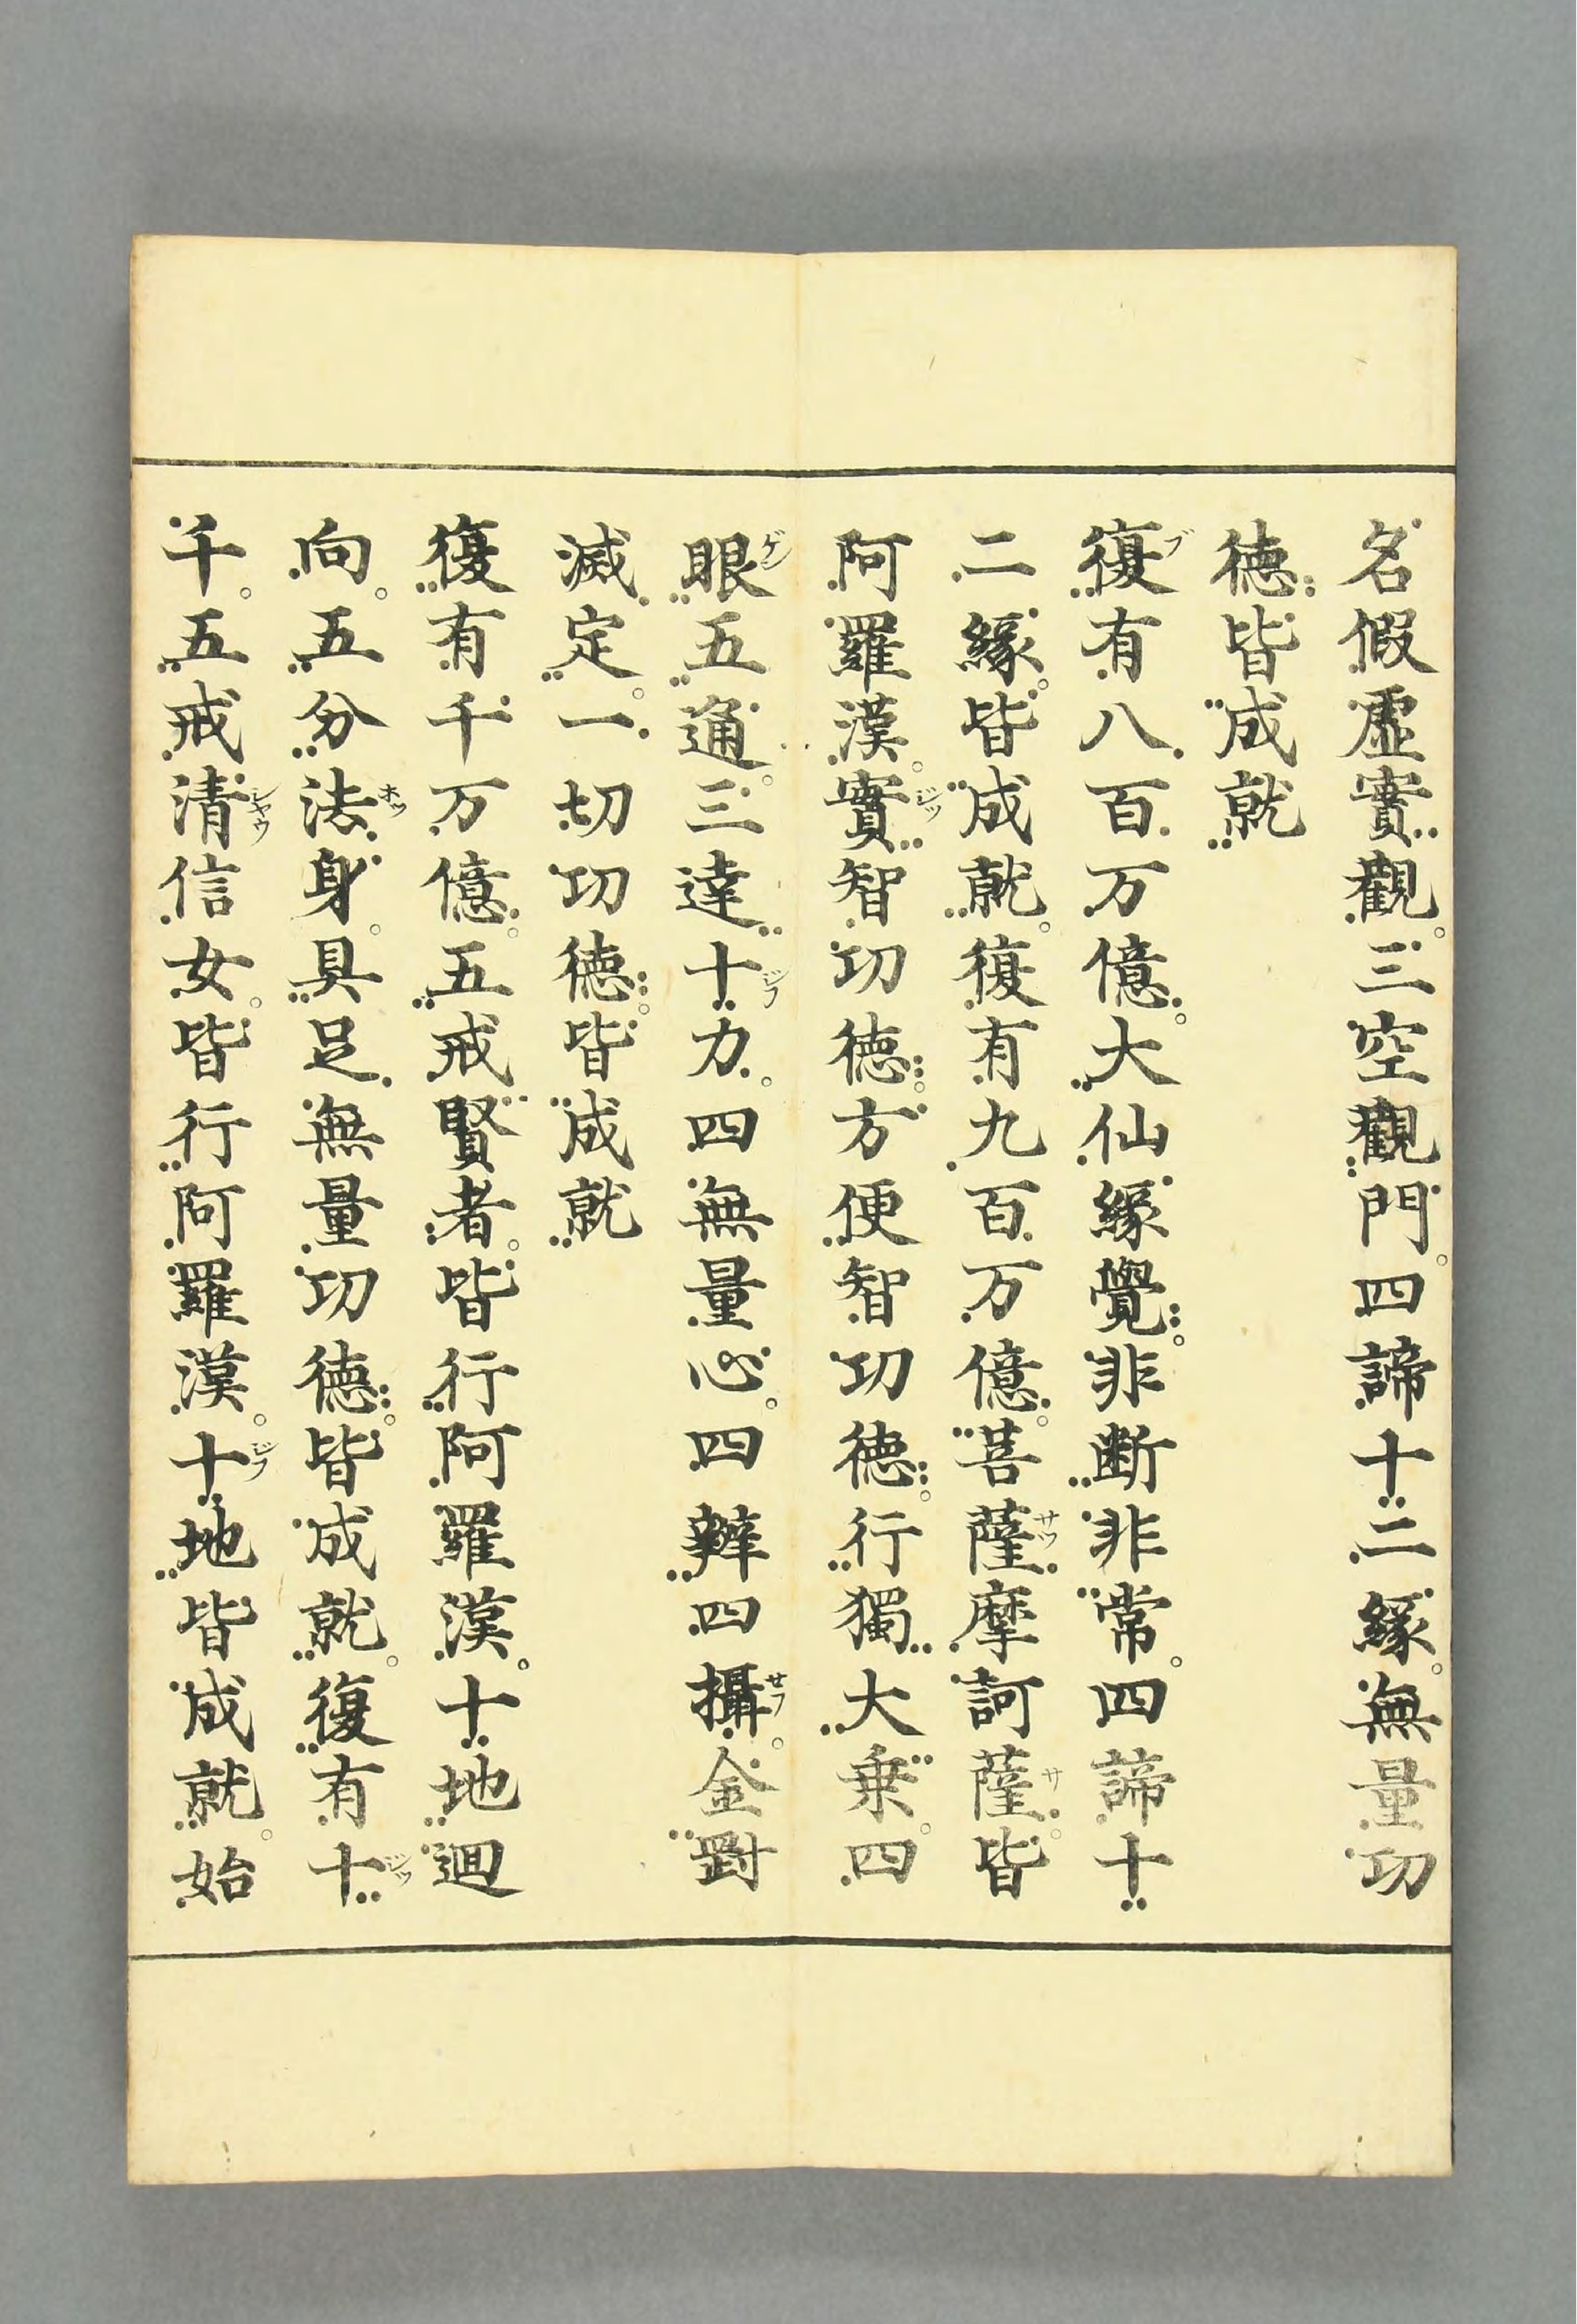 名假虛實觀。三空觀門。四諦十二緣。無量功
德皆成就
復有八百万億。大仙緣覺。非断非常。四諦十
二緣。皆成就。復有九百万億。菩薩摩訶薩。皆
阿羅漢。實智功德。方便智功德。行獨大乗。四
眼五通。三達十力。四無量心。四辯四攝。金剛
滅定。一切功德。皆成就
復有千万億。五戒賢者。皆行阿羅漢。十地迴
向。五分法身。具足無量功德。皆成就。復有十
千。五戒清信女。皆行阿羅漢。十地皆成就。始